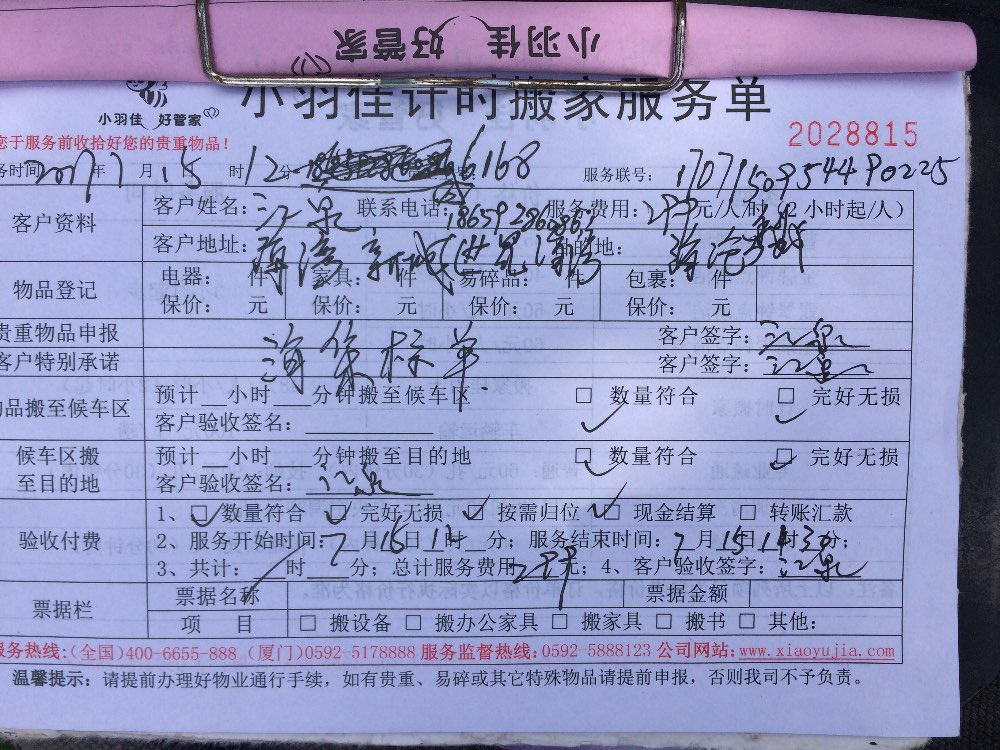 小羽佳 好管家
小羽佳计时搬家服务单
小羽佳 好管家
2028815
您于服务前收拾好您的贵重物品！
务时间2017年7月15时12分 6168 服务联号：1707150954490225
客户资料 客户姓名：江泉 联系电话： 服务费用：299元/人/时（2小时起/人）
客户地址：海湾新城 目的地：海沧
物品登记 电器： 件 家具： 件 易碎品： 件 包裹： 件
保价： 元 保价： 元 保价： 元 保价： 元
贵重物品申报 客户签字：江泉
客户特别承诺 客户签字：江泉
物品搬至候车区 预计__小时___分钟搬至候车区 □ 数量符合 □ 完好无损
客户验收签名：
候车区搬至目的地 预计__小时___分钟搬至目的地 □ 数量符合 □ 完好无损
客户验收签名：江泉
验收付费 1、□ 数量符合 □ 完好无损 □ 按需归位 □ 现金结算 □ 转账汇款
2、服务开始时间：7月15日 时 分；服务结束时间：7月15日 时30分；
3、共计： 时 分；总计服务费用299元；4、客户验收签字：江泉
票据栏 票据名称 票据金额
项 目 □ 搬设备 □ 搬办公家具 □ 搬家具 □ 搬书 □ 其他：
服务热线:(全国)400-6655-888 (厦门)0592-5178888 服务监督热线:0592-5888123 公司网站:www.xiaoyujia.com
温馨提示：请提前办理好物业通行手续，如有贵重、易碎或其它特殊物品请提前申报，否则我司不予负责。